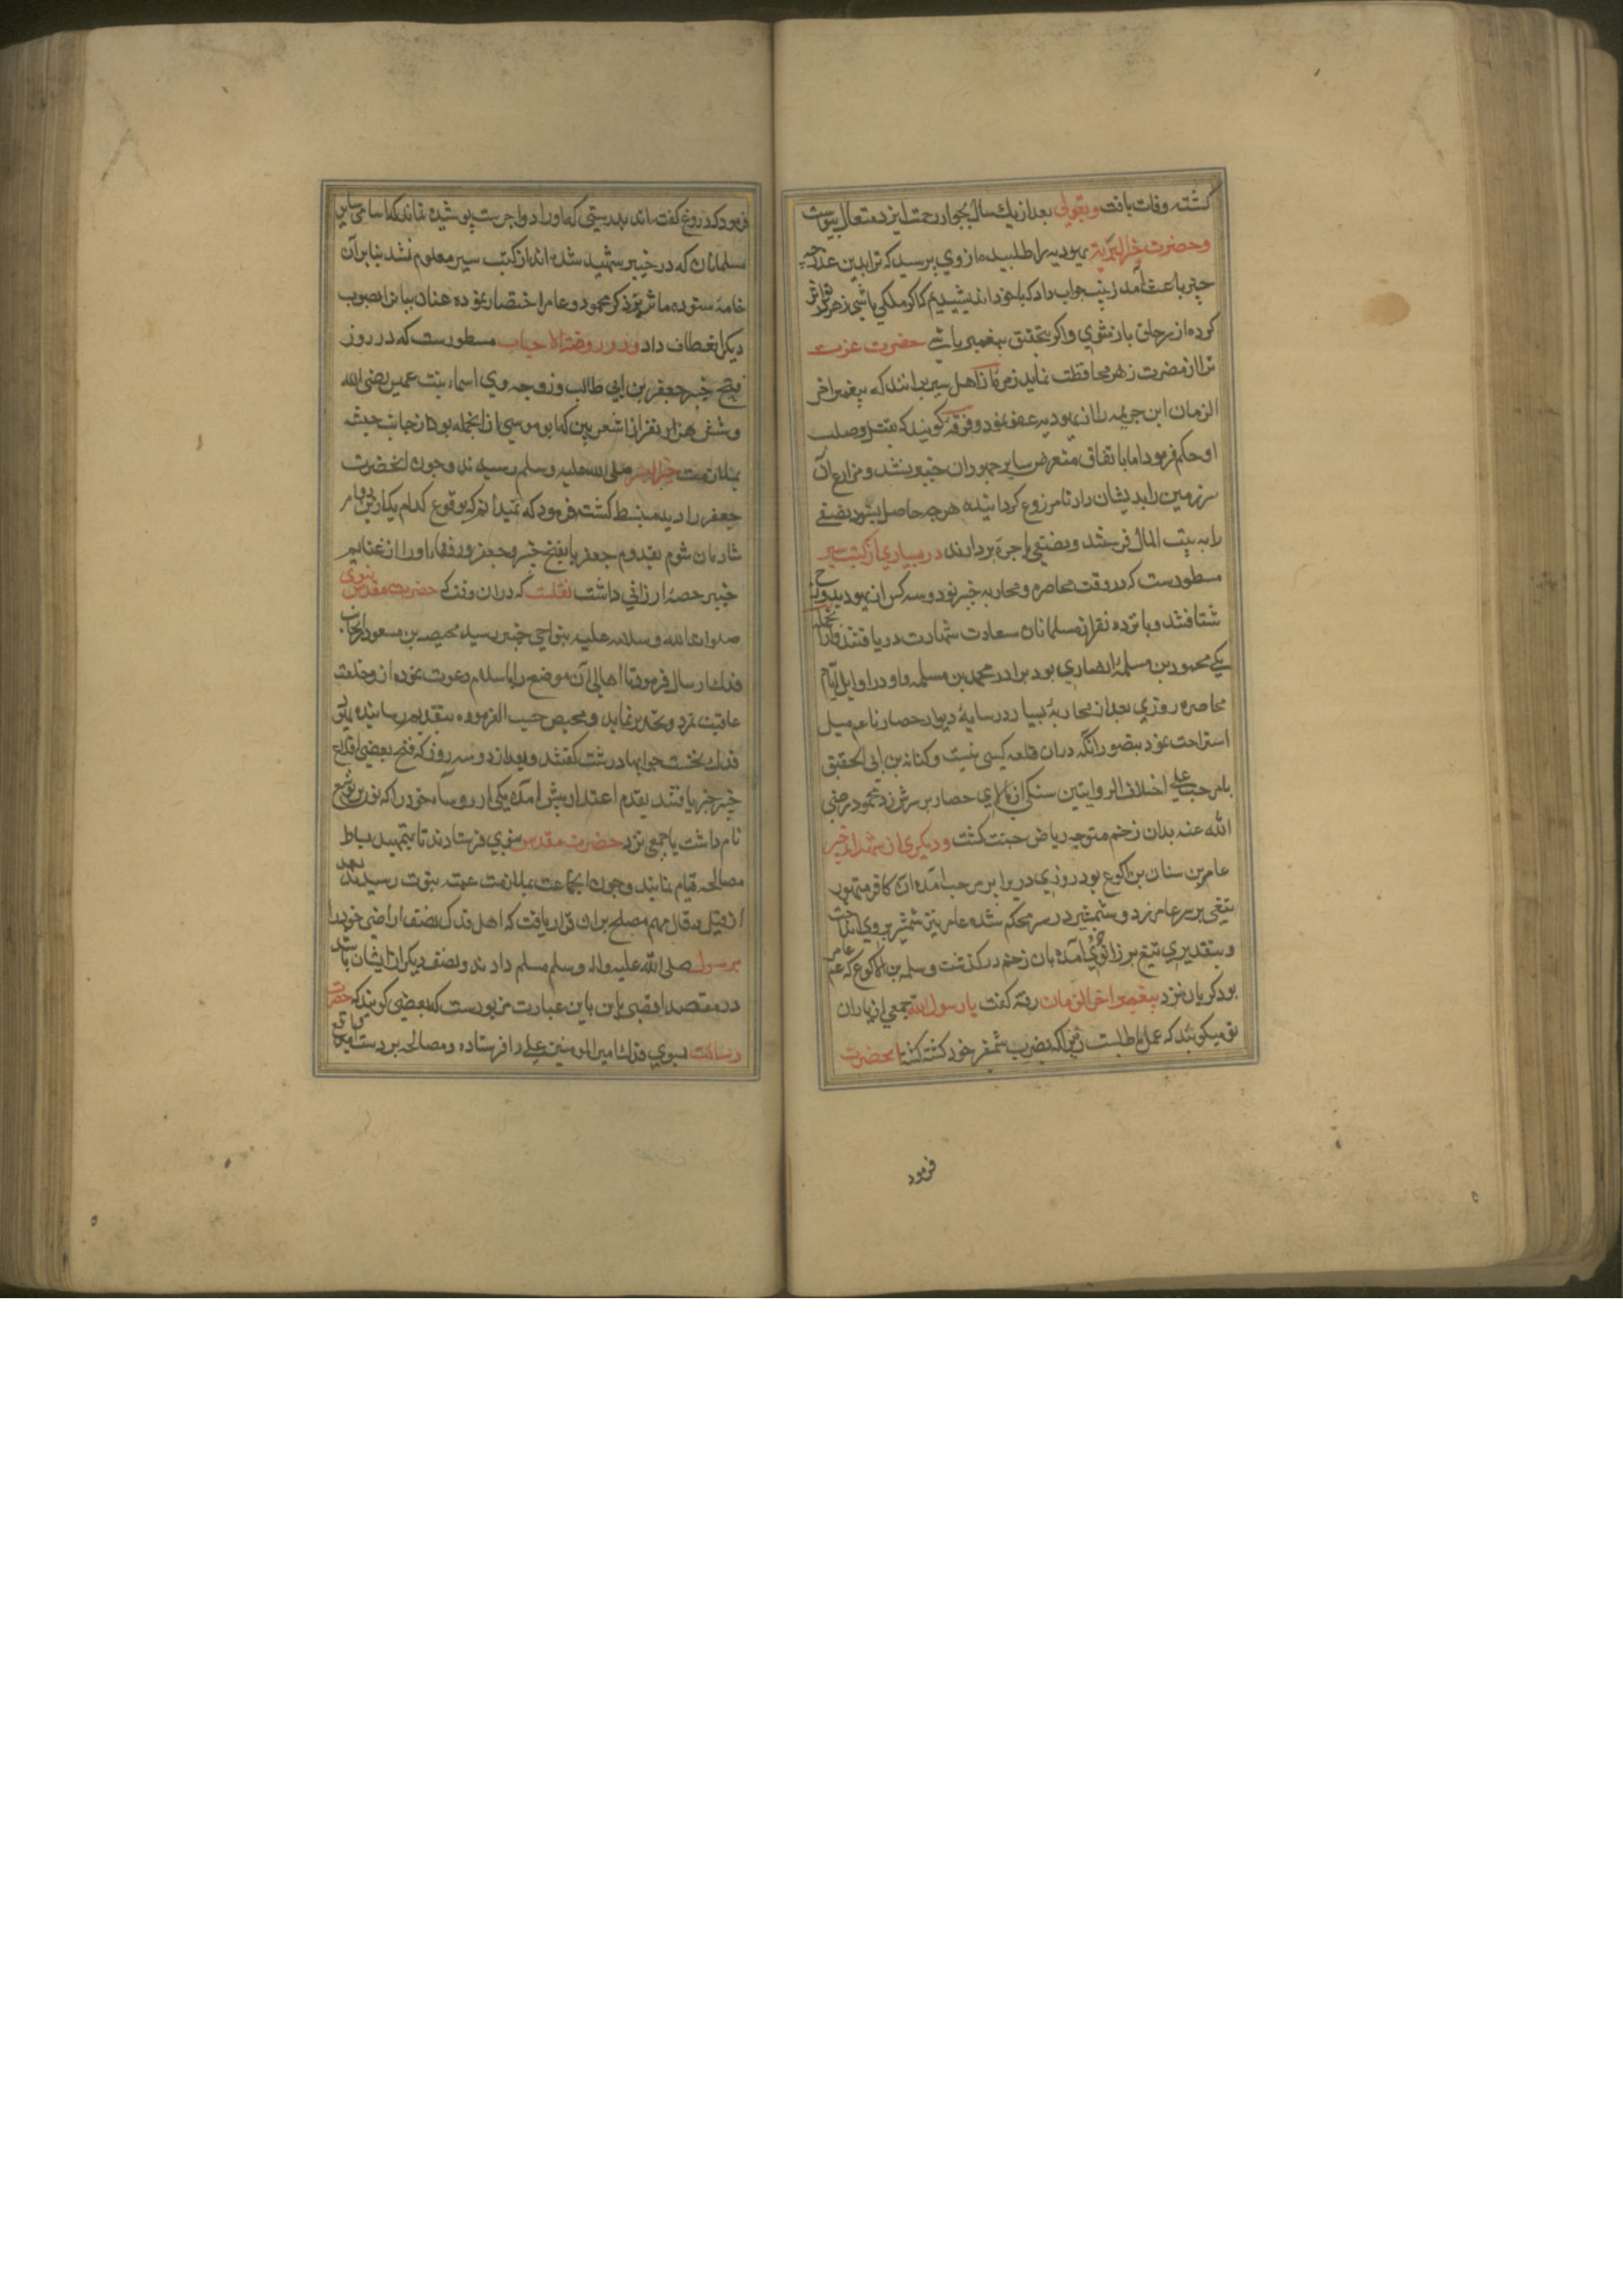 کشته وفات یافت وبقولی بعد از یك سال بجوار رحمت ایزد متعال پیوست
وحضرت خیرالبریه یهودیه را طلبیده از وی پرسید که ترا بدین غدر چه
چیز باعث آمد زینب جواب داد که با خود اندیشیدم که اگر ملکی باشی زهر اثر
کرده از سر خلق باز شوی واگر بتحقیق پیغمبر باشی حضرت عزت
ترا از مضرت زهر محافظت نماید زمره از اهل سیر برانند که پیغمبر آخر
الزمان این جریمه را از یهودیه عفو نمود وفرقه گویند که بقتل وصلب
او حکم فرمود اما باتفاق متعرض سایر جهودان خیبر نشد ومزارع آن
سرزمین را بدیشان داد تا مزروع گردانیده هرچه حاصل شود نصفی
را به بیت المال فرستند ونصفی باجره بردارند در بسیاری از کتب سیر
مسطورست که در وقت محاصره ومحاربه خیبر نود وسه کس از یهود بدوزخ
شتافتند وپانزده نفر از مسلمانان سعادت شهادت دریافتند وازانجمله
یکی محمود بن مسلمه انصاری بود برادر محمد بن مسلمه واو در اوایل ایام
محاصره روزی بعد از محاربه بسیار در سایه دیوار حصار ناعم میل
استراحت نمود بتصور آنکه دران قلعه کسی نیست وکنانه بن ابی الحقیق
یا مرحب علی اختلاف الروایتین سنگی از بالای حصار بر سرش زد محمود رضی
الله عنه بدان زخم متوجه ریاض جنت گشت ودیگری از شهداء خیبر
عامر بن سنان بن اکوع بود روزی در برابر مرحب آمده آن کافر متهور
تیغی بر سر عامر زد وشمشیر در سپر محکم شده عامر نیز شمشیر بر وی انداخت
وبتقدیری تیغ بر زانوی خود آمده بان زخم درگذشت وسلمه بن الاکوع که عم عامر
بود گریان نزد پیغمبر آخر الزمان رفته گفت یا رسول الله جمعی از یاران
تو میگویند که عمل عامر باطلست زیرا که بضرب شمشیر خود کشته گشته آنحضرت
فرمود
فرمود که دروغ گفته‌اند بدرستی که او را دو اجرست پوشیده نماند که اسامی سایر
مسلمانان که در خیبر شهید شده اند از کتب سیر معلوم نشد بنابر آن
خامه ستوده مآثر بر ذکر محمود وعامر اختصار نموده عنان بیان بصوب
دیگر انعطاف داد ودر روضة الاحباب مسطورست که در روز
فتح خیبر جعفر بن ابی طالب وزوجه وی اسماء بنت عمیس رضی الله
وشش هزار نفر از اشعریین که ابو موسی از انجمله بود از جانب حبشه
بملازمت خیرالبشر صلی الله علیه وسلم رسیدند وچون آنحضرت
جعفر را دید منبسط گشت فرمود که نمیدانم که بوقوع کدام یک ازین دو امر
شادمان شوم بقدوم جعفر یا بفتح خیبر وجعفر ورفقاء او را از غنایم
خیبر حصه ارزانی داشت نقلست که دران وقت که حضرت مقدس نبوی
صلوات الله وسلامه علیه بنواحی خیبر رسید محیصه بن مسعود را بجانب
فدك ارسال فرمود تا اهالی آن موضع را باسلام دعوت نموده از وخامت
عاقبت تمرد تحذیر نماید ومحیصه حسب الفرموده بتقدیم رسانیده اهالی
فدك نخست جوابهاء درشت گفتند وبعد از دو سه روز که فتح بعضی از قلاع
خیبر خبر یافتند بقدم اعتذار پیش آمده یکی از روساء خود را که نون بن یوشع
نام داشت با جمعی نزد حضرت مقدس نبوی فرستادند تا بتمهید بساط
مصالحه قیام نمایند وچون آن جماعت بملازمت عتبه نبوت رسیدند بعد
از قیل وقال مهم مصلح بران قرار یافت که اهل فدك نصف اراضی خود را
برسول صلی الله علیه واله وسلم مسلم دارند ونصف دیگر از ایشان باشد
در مقصد اقصی این باین عبارت مزبورست که بعضی گویند که حضرت
رسالت بسوی فدك امیر المومنین علی را فرستاده ومصالحه بر دست او واقع